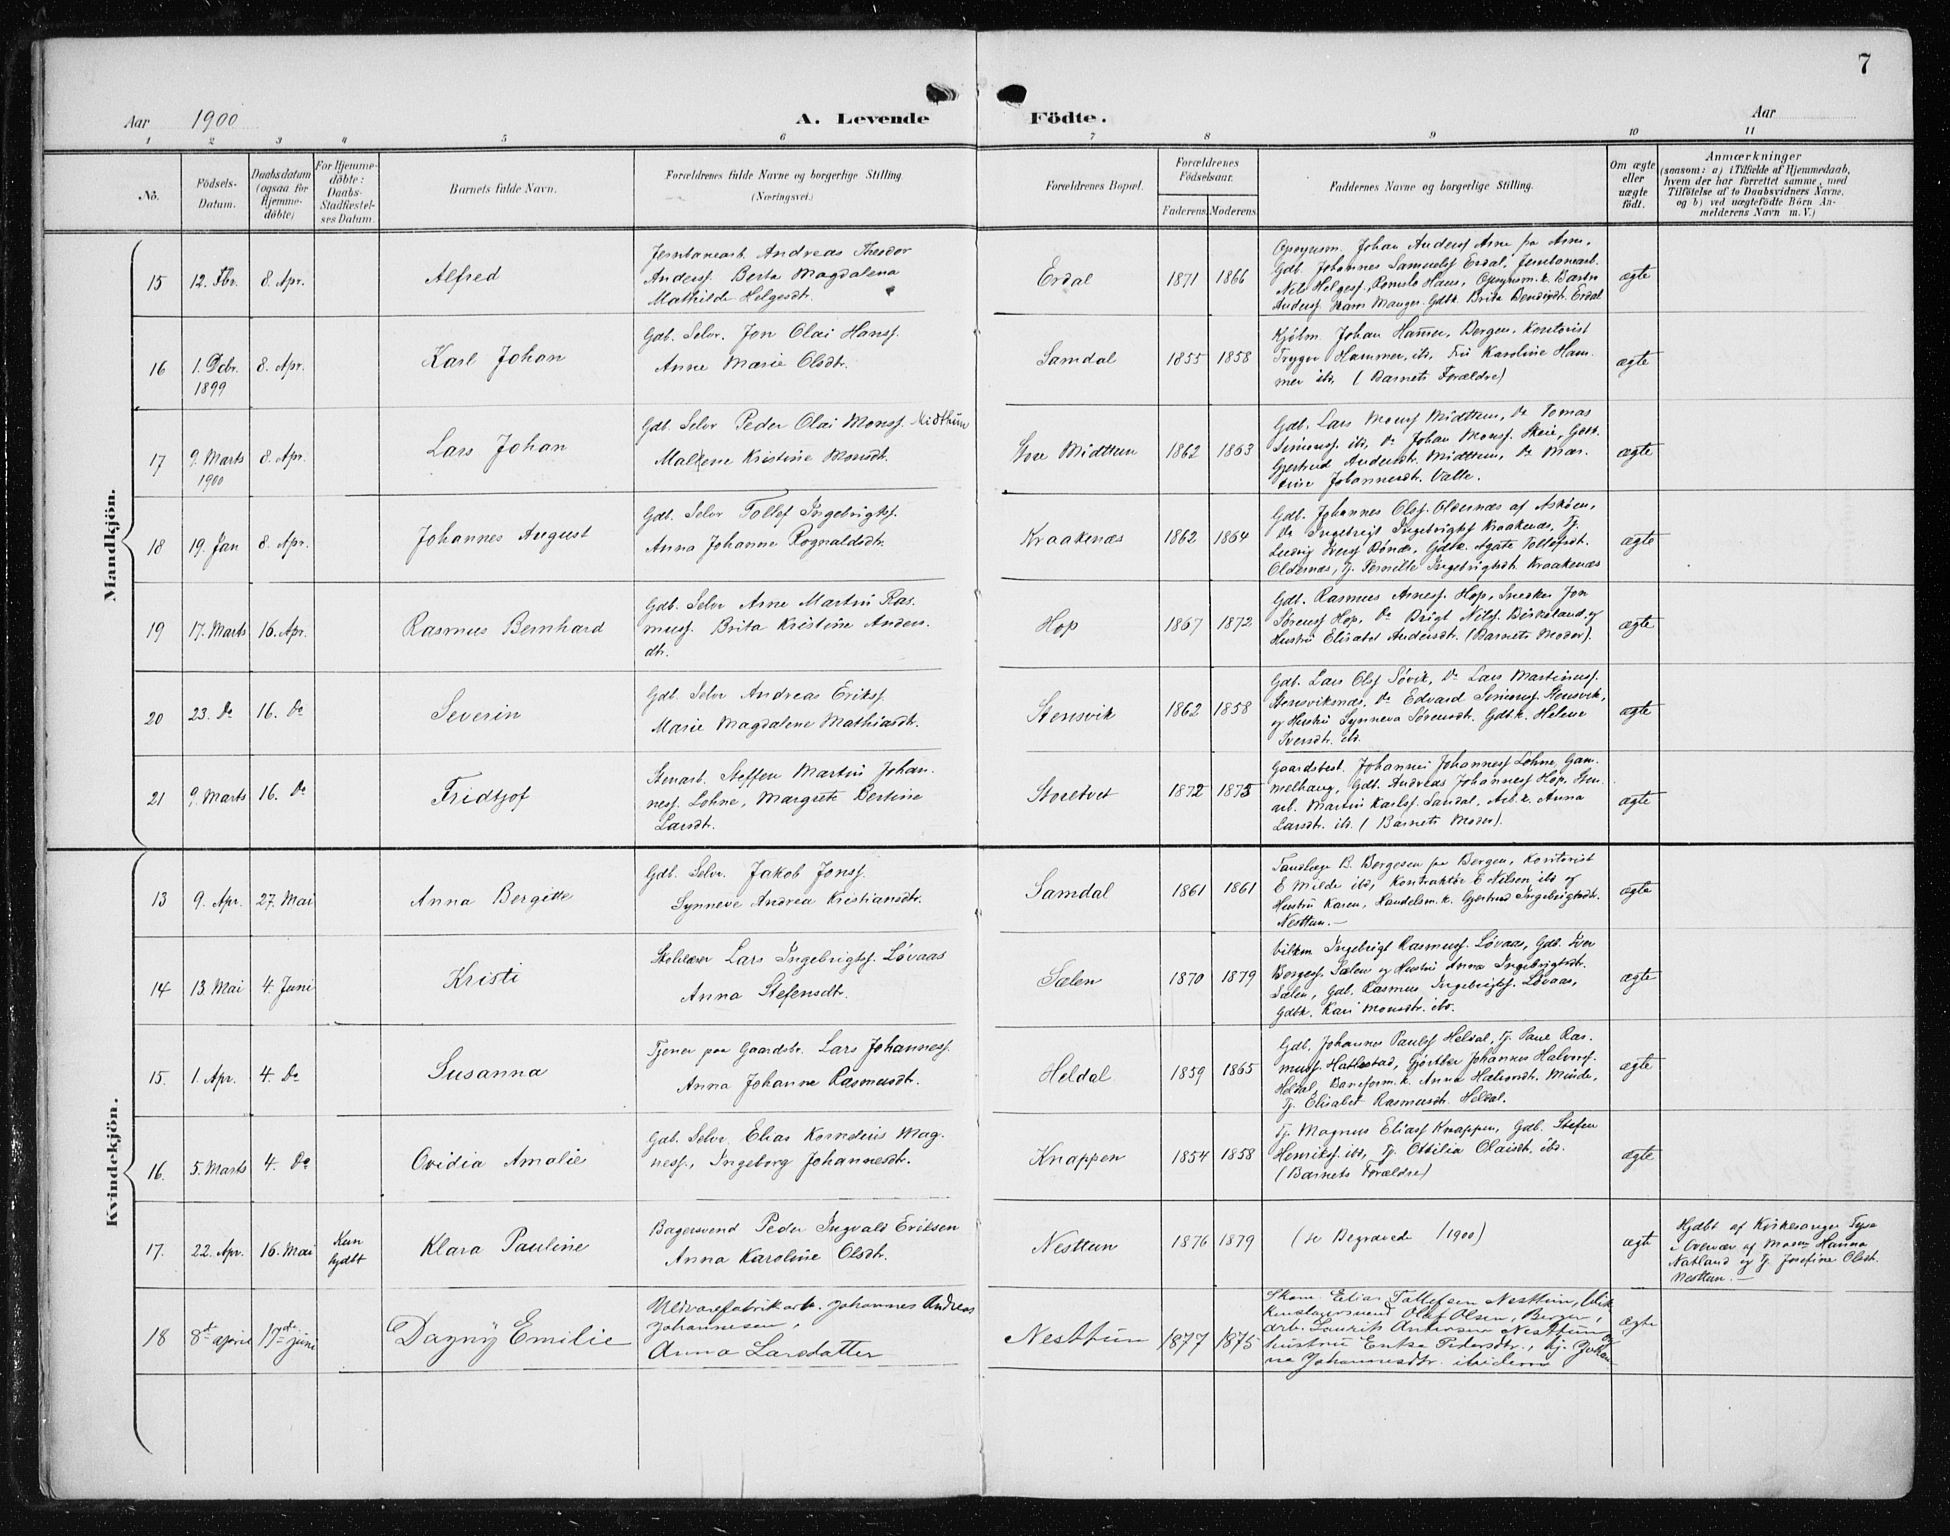 7
Aar 1900 A. Levende Födte. Aar
1 2 3 4 5 6 7 8 9 10 11
No.
Födsels-Datum.
Daabsdatum (ogsaa for Hjemme-döbte)
For Hjemme-döbte: Daabs-Stadfæstel-ses Datum.
Barnets fulde Navn.
Forældrenes fulde Navne og borgerlige Stilling.
(Næringsvei.)
Forældrenes Bopæl.
Forældrenes Födselsaar.
Faderens. Moderens.
Faddernes Navne og borgerlige Stilling.
Om ægte eller uægte födt.
Anmærkninger
(saasom: a) i Tilfælde af Hjemmedaab,
hvem der har forrettet samme, med
Tilföielse af to Daabsvidners Navne,
og b) ved uægtefödte Börn An-
melderens Navn m. V.)
Mandkjön.
15 12. Fbr. 8. Apr. Alfred
Jernbanearb. Andreas Theodor
Anderss. Berta Magdalena
Mathilde Helgesdt.
Erdal 1871 1866
Opsynsm. Johan Anderss Arne fra Arne,
Gdb. Johannes Samuels Erdal, Jernbanearb.
Nils Helgess., Romslo Haus, Opsynsm.k.
Anderss. Manger. Gdbk. Brita Erdal
ægte
16 1. Dcbr. 1899 8. Apr. Karl Johan
Gdb. Selv. Jon Olai Hanss.
Anne Marie Olsdtr.
Samdal 1855 1858
Kjøbm. Johan Hammer, Bergen, Kontorist
Trygve Hammer, ib., Frü Karoline Ham-
mer ib. (Barnets Forældre)
ægte
17 9. Marts 1900 8. Apr. Lars Johan
Gdb. Selv Peder Olai Monss. Midthun
Malene Kristine Monsdt.
Øvre Midttun 1862 1863
Gdb. Lars Monss Midttun, Do Tomas
Simonss. ib., Do Johan Monss. Skeie, Gdbk.
Gjertrud Andersdt. Midttun, Do Mar-
tine Johannesdt. Valle.
ægte
18 19. Jan 8. Apr. Johannes August
Gdb. Selv Tollef Ingebrigtss.
Anna Johanne Rognaldsdt.
Kraakenæs 1862 1864
Gdb. Johannes Olss. Oldernæs af Askøen,
Do Ingebrigt Ingebrigtss Kraakenæs, Tj.
Ludvig Iverss Bønæs, Gdbk. Agate Tollefsdt.
Oldernæs, Tj. Pernille Ingebrigtsdt. Kraakenæs
ægte
19 17. Marts 16. Apr. Rasmus Bernhard
Gdb. Selv Arne Martin Ras-
muss. Brita Kristine Anders-
dt.
Hop 1867 1872
Gdb. Rasmus Arness. Hop, Snedker Jon
Sørenss Hop, Do Brigt Nilss. Birkeland og
Hustru Elisabet Andersdt. (Barnets Moder).
ægte
20 23. Do 16. Do Severin
Gdb. Selv Andreas Erikss.
Marie Magdalene Mathiasdt.
Stensvik 1862 1858
Gdb. Lars Olss Søvik, Do Lars Martinuss.
Stensviknæs, Do Edvard Simonss. Stensvik,
og Hustru Synneva Sørensdt. Gdbk. Helene
Iversdt. ib.
ægte
21 9. Marts 16. Do Fridtjof
Stenarb. Steffen Martin Johan-
ness. Lohne, Margrete Bertine
Larsdt.
Storetvet 1872 1875
Gaardsbest. Johannes Johanness Lohne, Gam-
melhaug, Gdb. Andreas Johanness Hop, Sten-
arb. Martin Karlss. Sandal, Arb.k. Anna
Larsdt. ib. (Barnets Moder).
ægte
Kvindekjön.
13 9. Apr. 27. Mai Anna Bergitte
Gdb. Selv. Jakob Jonss.
Synneve Andrea Kristiansdt.
Samdal 1861 1861
Tandlæge B. Bergesen fra Bergen, Kontorist
E Milde ib., Kontraktør E Nilsen ib og
Hustru Karen, Handelsm.k. Gjertrud Ingebrigtsdt.
Nesttun.
ægte
14 13. Mai 4. Juni Kristi
Lars Ingebrigtss. Løvaas
Anna Stefensdt.
Sælen 1870 1879
Ingebrigt Rasmuss. Løvaas, Gdb. Iver
Bergess. Sælen og Hustru Anna Ingebrigtsdt.
Sælen, Gdb. Rasmus Ingebrigtss. Løvaas,
Gdbk. Kari Monsdt. ib.
ægte
15. 1. Apr. 4. Do Susanna
Tjener paa Gaardsbr. Lars Johanness.
Anna Johanne Rasmusdt.
Heldal 1859 1865
Gdb. Johannes Paulss Heldal, Tj. Ras-
muss. Hatlestad, Gjørtler Johannes Halvorss.
Heldal, Baneform.k. Anna Minde,
Tj. Elisabet Rasmusdt. Heldal.
ægte
16. 5. Marts 4. Do Ovidia Amalie
Gdb. Selv. Elias Kornelius Mag-
ness., Ingeborg Johannesdt.
Knappen 1854 1858
Tj. Magnus Eliass Knappen, Gdb. Stefen
Henrikss. ib., Tj. Ottilia Olaisdt. ib.
(Barnets Forældre)
ægte
17. 22. Apr. 16. Mai Kun hjdbt Klara Pauline
Bagersvend Peder Ingvald Eriksen
Anna Karoline Olsdt.
Nesttun 1876 1879
(se Begravede 1900)
ægte
Hjdbt af Kirkesanger Tysse
i Overvær af Hanna
Natland og Tj. Josefine Olsdt.
Nesttun.
18 8de april 17de juni Dagny Emilie
Uldvarefabrikarb. Johannes Andreas
Johannesen,
Anna Larsdatter
Nesttun 1877 1875
Skom. Elias Tollefsen Nesttun, Blik-
kenslagersvend Olaf Olsen, Bergen,
arb. Laurits Andersen Nesttun og
hustru Enka Pedersdtr., tj. Johan-
ne Johannesdtr. ibidem
ægte